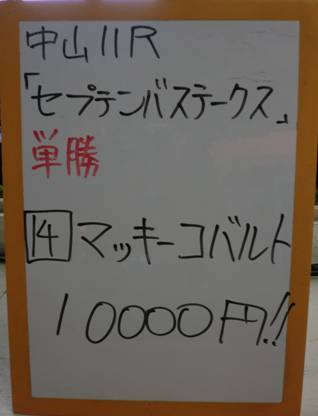 中山11R
「セプテンバステークス」
単勝
14 マッキーコバルト
10000円!!